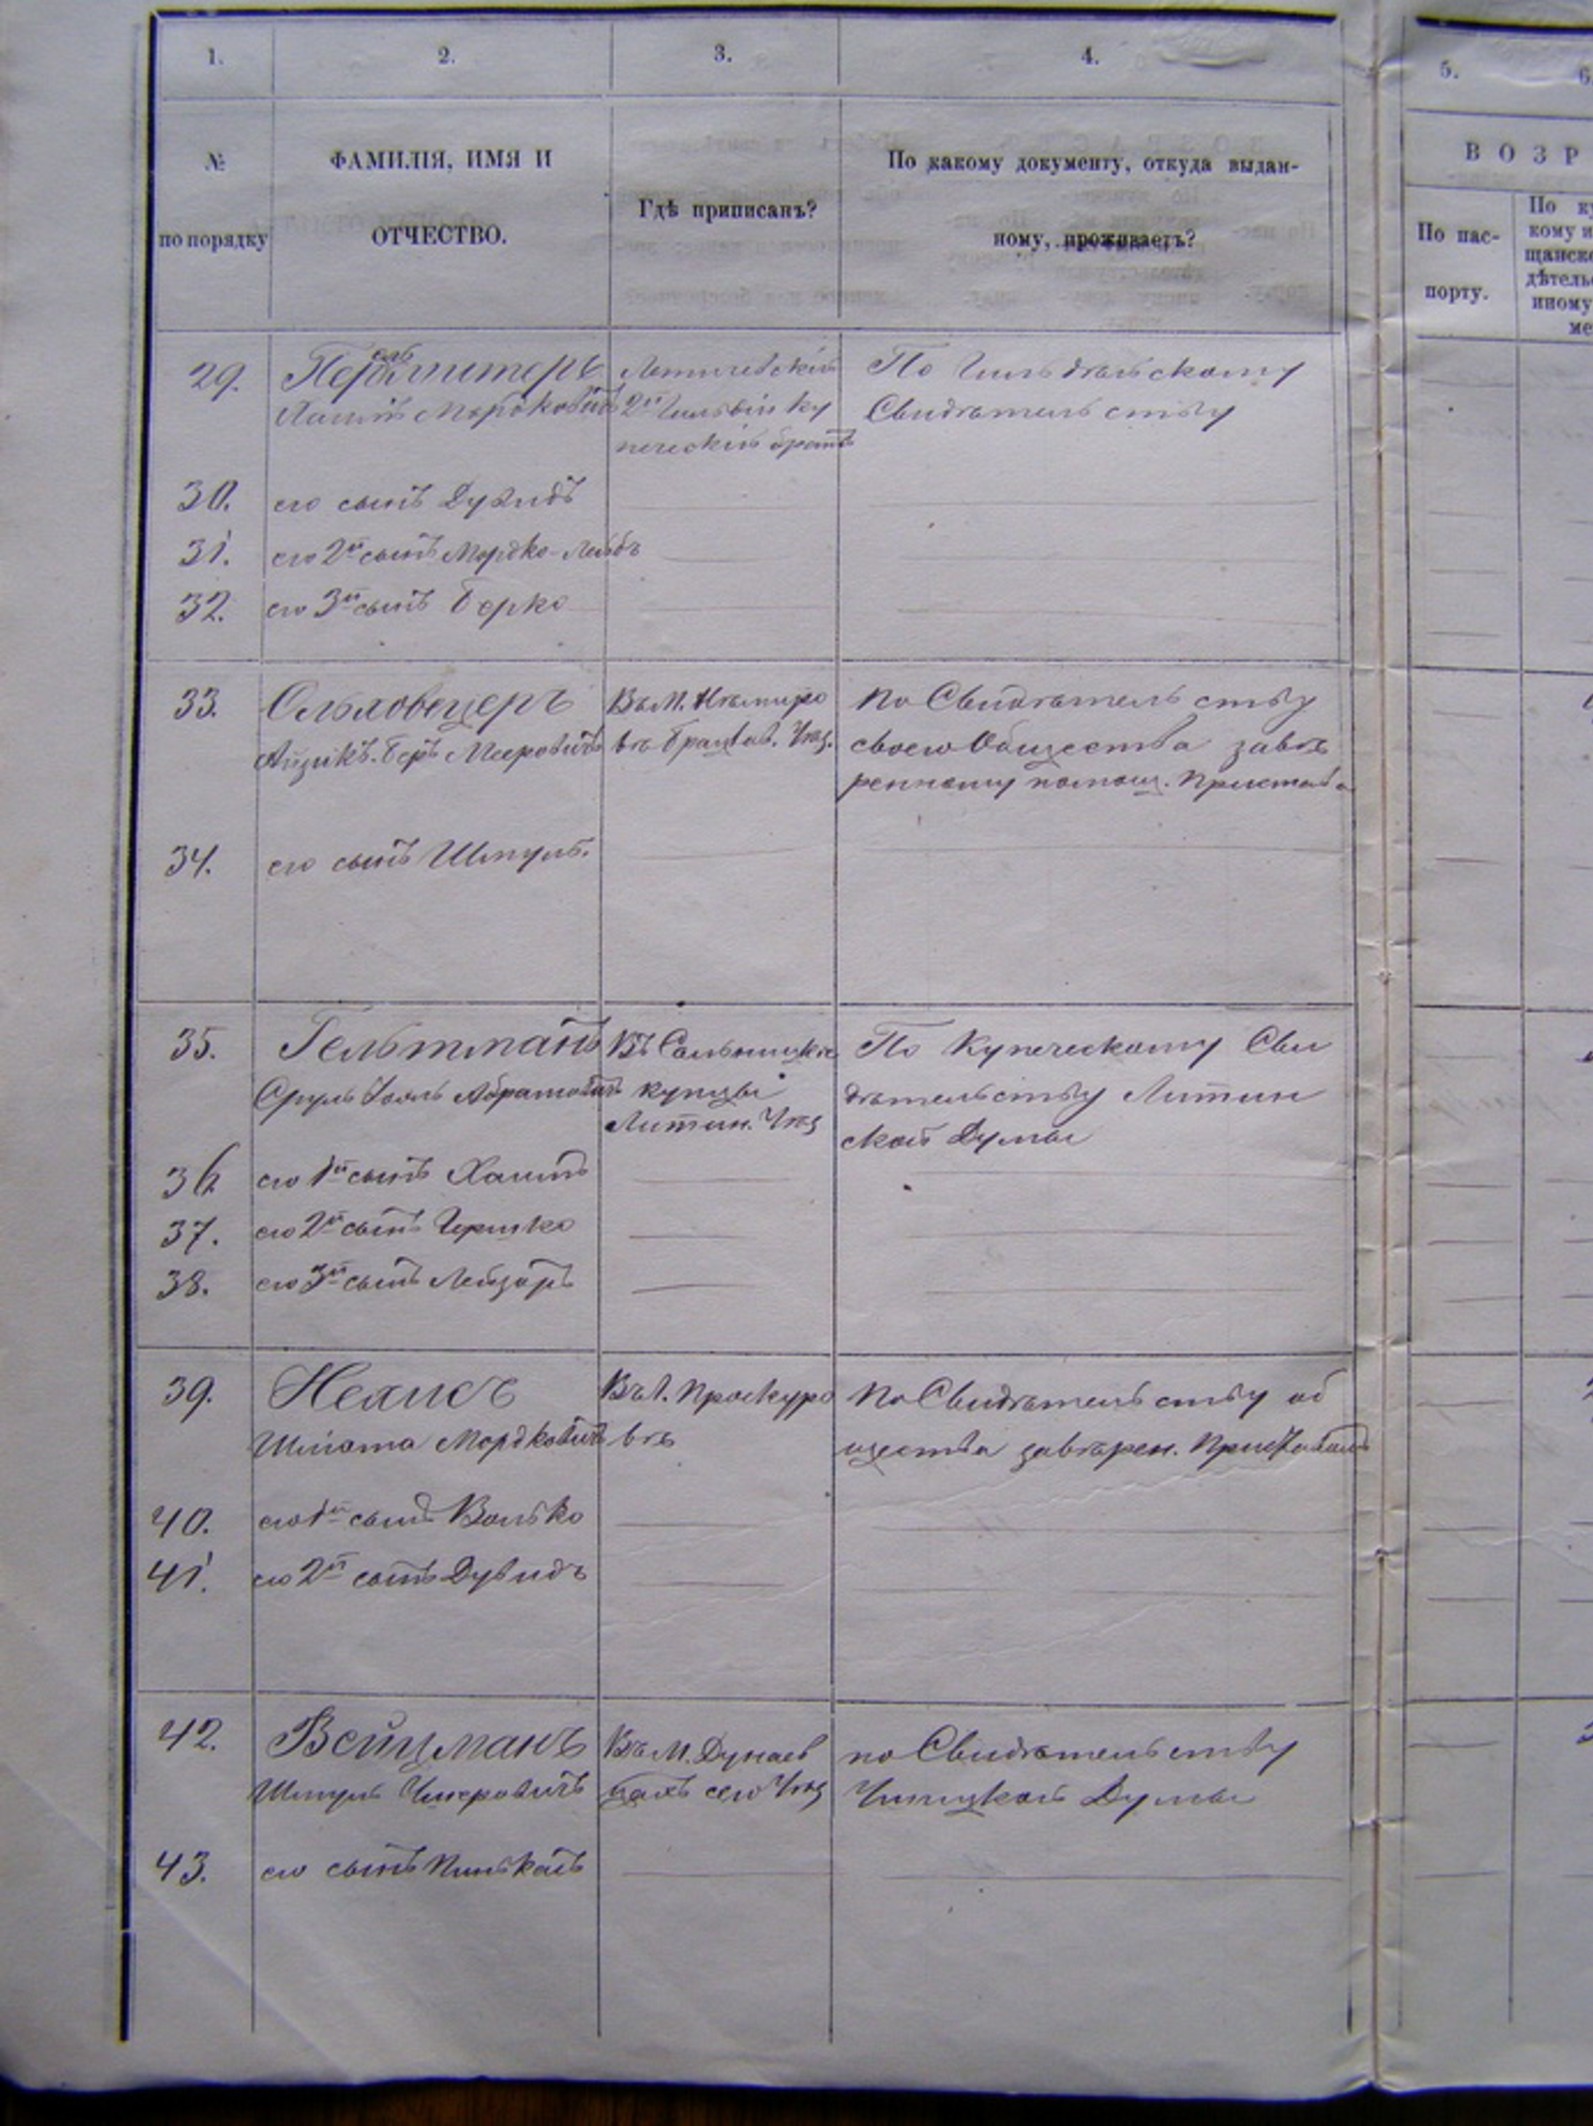 1. 2. 3. 4. 5. 6
№ по порядку
ФАМИЛІЯ, ИМЯ И
ОТЧЕСТВО.
Гдѣ приписанъ?
По какому документу, откуда выдан-
ному, проживаетъ?
ВОЗР
По пас-
порту.
По ку
кому и
щанско
дѣтель
иному
ме
29.
Хаимъ Мордковичъ
Летичевскій
2й Гильдіи ку
печескій братъ
По Гильдѣйскому
Свидѣтельству
30. его сынъ Дувидъ
31. его 2й сынъ Мордко-Лейбъ
32. его 3й сынъ Берко
33. Ольховецеръ
Айзикъ-Беръ Мееровичъ
Въ М. Нѣмиро
вѣ Брацлав. Уѣз.
По Свидѣтельству
своего Общества завѣ
ренному помощ. Пристава
34. его сынъ Шмуль.
35. Гельтманъ
Сруль Іоэль Абрамовичъ
Въ Сальницкіе
купцы
Литин. Уѣз
По Купеческому Сви
дѣтельству Литин
ской Думы
36. его 1й сынъ Хаимъ
37. его 2й сынъ Гершко
38. его 3й сынъ Лейзоръ
39. Нехисъ
Шліома Мордковичъ
Въ г. Проскуро
вѣ
По Свидѣтельству об
щества завѣрен. Приставомъ
40. его 1й сынъ Волько
41. его 2й сынъ Дувидъ
42. Вейцманъ
Шмуль Ушеровичъ
Въ М. Дунаев
цахъ сего Уѣз
по Свидѣтельству
Ушицкой Думы
43. его сынъ Пинькасъ